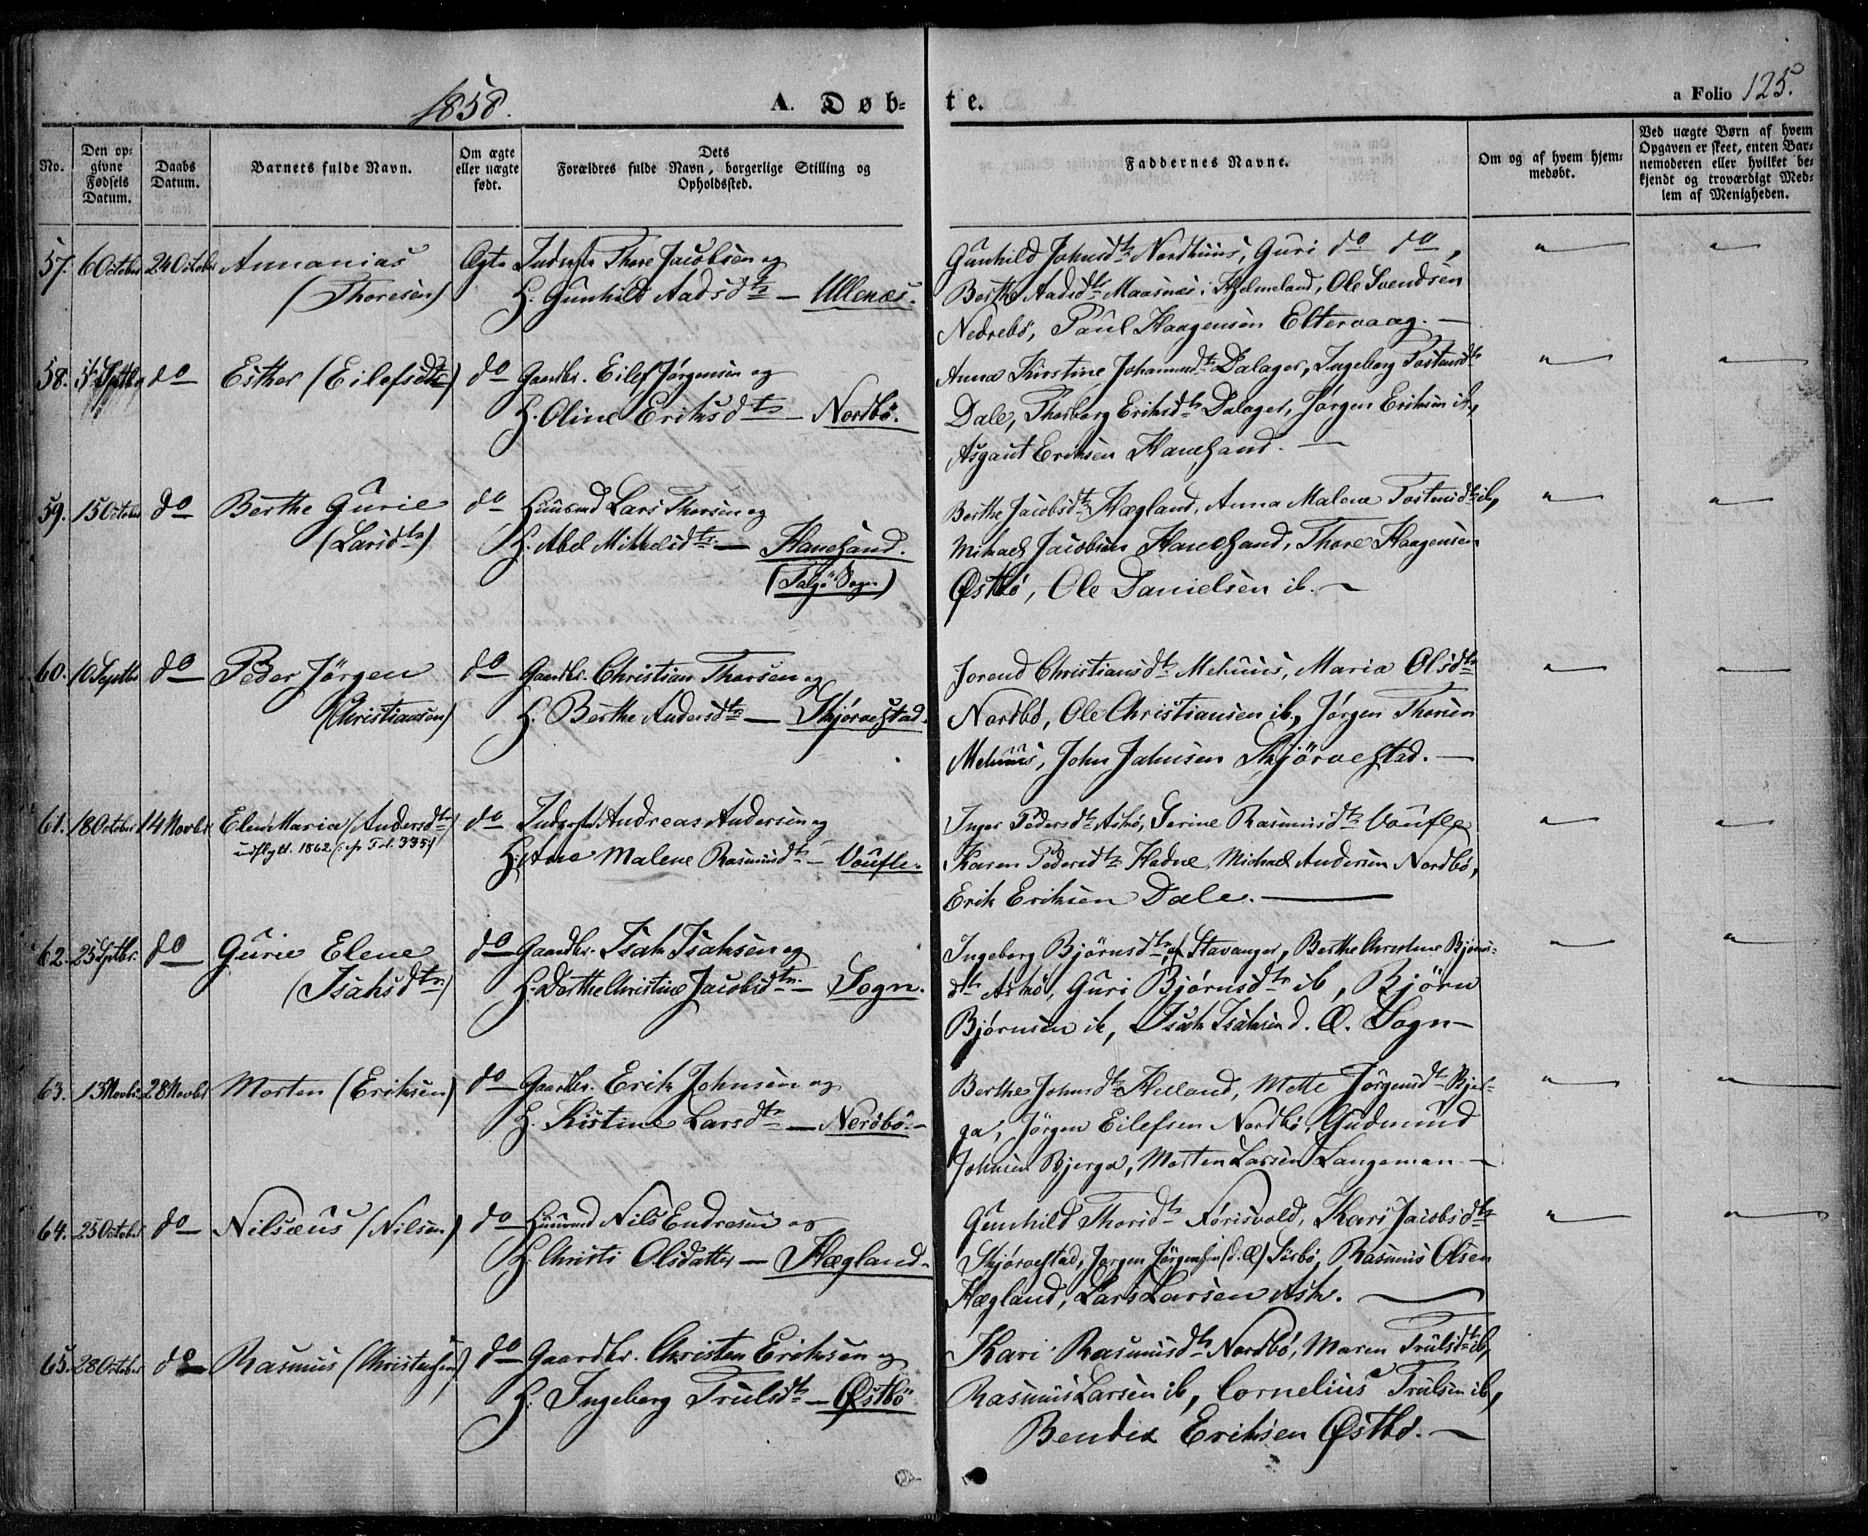 1858. A. Døb- te. a Folio 125.
No.
Den op-
givne
Fødsels
Datum.
Daabs
Datum.
Barnets fulde Navn.
Om ægte
eller uægte
født.
Dets
Forældres fulde Navn, borgerlige Stilling og
Opholdssted.
Faddernes Navne.
Om og af hvem hjem-
medøbt.
Ved uægte Børn af hvem
Opgaven er skeet, enten Bar-
nemoderen eller hvilket be-
kjendt og troværdigt Med-
lem af Menigheden.
57. 6 October 24 October Annanias Ægte Inderste Thore Jacobsen og
(Thoresen) H. Gunhild Aadsdtr — Ullenæs.
Gunhild Johnsdtr Nordhuus, Guri do do,
Berthe Aadsdtr Maasnæs i Hjelmeland, Ole Svendsen
Nedrebö, Paul Haagensen Eltervaag. —
58. 5 Septbr do Esther (Eilefsdtr) do Gaardbr. Eilef Jørgensen og
H. Oline Eriksdtr — Nordbø.
Anna Kirstine Johannesdtr Dalager, Ingeborg Tostensdtr
Dale, Thorborg Eriksdtr Dalager, Jørgen Eriksen ib,
Asgaut Eriksen Hanesand. —
59. 15 October do Berthe Gurie do Huusmd Lars Thorsen og
(Larsdtr) H. Abel Mikkelsdtr. — Hanesand.
(Talgö Sogn)
Berthe Jacobsdtr Hægland, Anna Malene Tostensdtr ib,
Michael Jacobsen Hanesand, Thore Haagensen
Østbö, Ole Danielsen ib. —
60. 10 Septbr do Peder Jörgen do Gaardbr. Christian Thorsen og
(Christiansen) H. Berthe Andersdtr — Skjørvestad.
Jorend Christiansdtr Mehuus, Maria Olsdtr
Nordbø, Ole Christiansen ib, Jørgen Thorsen
Mehuus, John Johnsen Skjörvestad. —
61. 18 October 14 Novbr Elen Maria (Andersdtr) do Inderste Andreas Andersen og
udflytt. 1862 (cfr Fol. 335) H. Ane Malene Rasmusdtr — Voufle.
Inger Pedersdtr Askø, Serine Rasmusdtr Voufle
Karen Pedersdtr Hadne, Michael Andersen Nordbö,
Erik Eriksen Dale. —
62. 25 Septbr. do Gurie Elene do Gaardbr. Isak Isaksen og
(Isaksdtr) H. Dorthe Christine Jacobsdtr. — Sogn.
Ingeborg Bjørnsdtr af Stavanger, Berthe Christine Bjørns-
dtr Askø, Guri Bjørnsdtr ib, Bjørn
Bjørnsen ib, Isak Isaksen d. Æ. Sogn —
63. 13 Novbr 28 Novbr Morten (Eriksen) do Gaardbr. Erik Johnsen og
H. Kistine Larsdtr — Nordbø. —
Berthe Johnsdtr Helland, Mette Jörgensdtr Bjer-
ga, Jørgen Eilefsen Nordbö, Gudmund
Johnsen Bjerga, Morten Larsen Langeman —
64. 25 October do Nilsæus (Nilsen) do Huusmd Nils Endresen og
H. Christi Olsdatter — Hægland. —
Gunhild Thorsdtr Førisvold, Kari Jacobsdtr
Skjörvestad, Jørgen Jörgensen (d. Æ) Sörbö, Rasmus Olsen
Hægland, Lars Larsen Ask. —
65. 28 October do Rasmus (Christensen) do Gaardbr. Christen Eriksen og
H. Ingeborg Trulsdtr — Østbö
Kari Rasmusdtr Nordbö, Maren Trulsdtr ib,
Rasmus Larsen ib, Cornelius Trulsen ib,
Bendix Eriksen Østbø. —